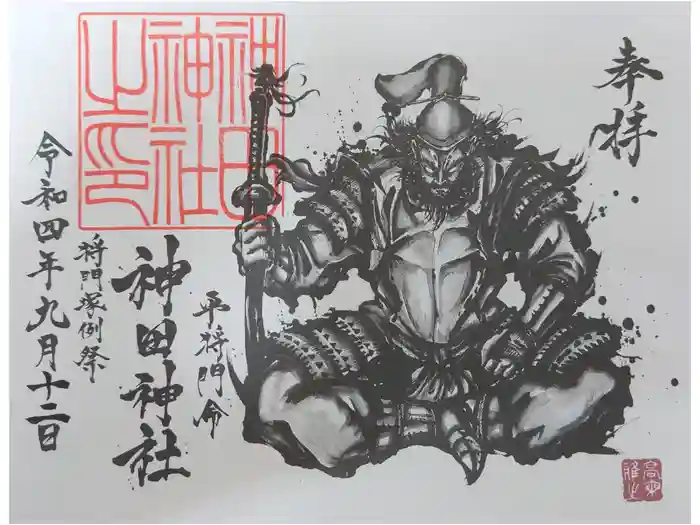 奉拝
平将門命
神田神社
将門塚例祭
令和四年九月十二日
神田
神社
之印